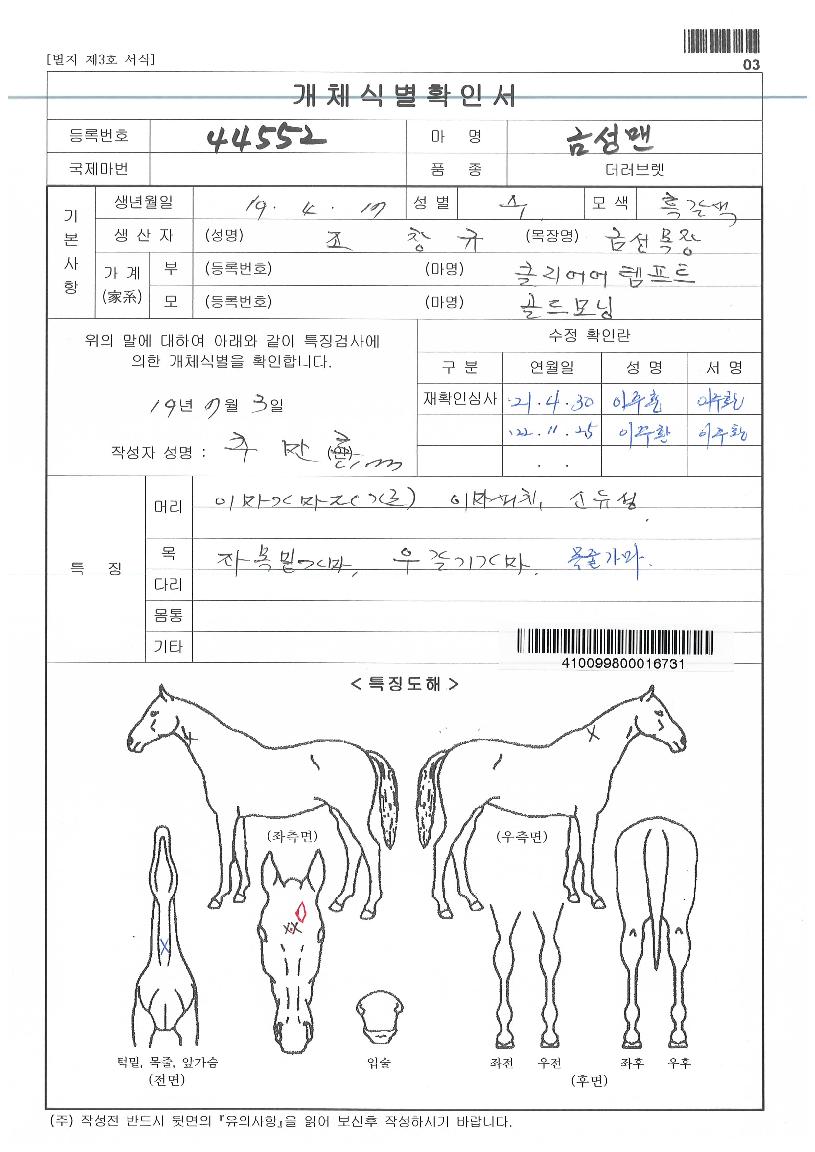 [별지 제3호 서식]
03
개체식별확인서
등록번호 44552 마 명 금성맨
국제마번 품 종 더러브렛
기본사항
생년월일 19. 4. 17 성별 수 모색 흑갈색
생산자 (성명) 조 창 규 (목장명) 금선목장
가계 (家系) 부 (등록번호) (마명) 클리어어템프트
모 (등록번호) (마명) 골드모닝
위의 말에 대하여 아래와 같이 특징검사에
의한 개체식별을 확인합니다.
19년 7월 3일
작성자 성명 : (인)
수정 확인란
구 분 연월일 성 명 서 명
재확인심사 21. 4. 30 이주환 이주환
22. 11. 25 이주환 이주환
. .
특 징
머리 이마가마조(가로) 이마피치,
목 좌목밑가마, 우줄기가마. 목줄가마.
다리
몸통
기타
410099800016731
< 특징도해 >
(좌측면) (우측면)
턱밑, 목줄, 앞가슴 입술 좌전 우전 좌후 우후
(전면) (후면)
(주) 작성전 반드시 뒷면의 『유의사항』을 읽어 보신후 작성하시기 바랍니다.